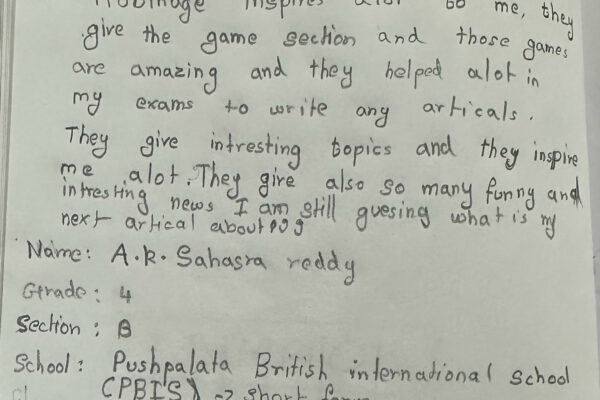 inspires alot to me, they
give the game section and those games
are amazing and they helped alot in
my exams to write any articals.
They give intresting topics and they inspire
me alot. They give also so many funny and
intresting news I am still guesing what is my
next artical about
Name: A.k. Sahasra reddy
Grade: 4
Section: B
School: Pushpalata British international school
(PBIS) → short form